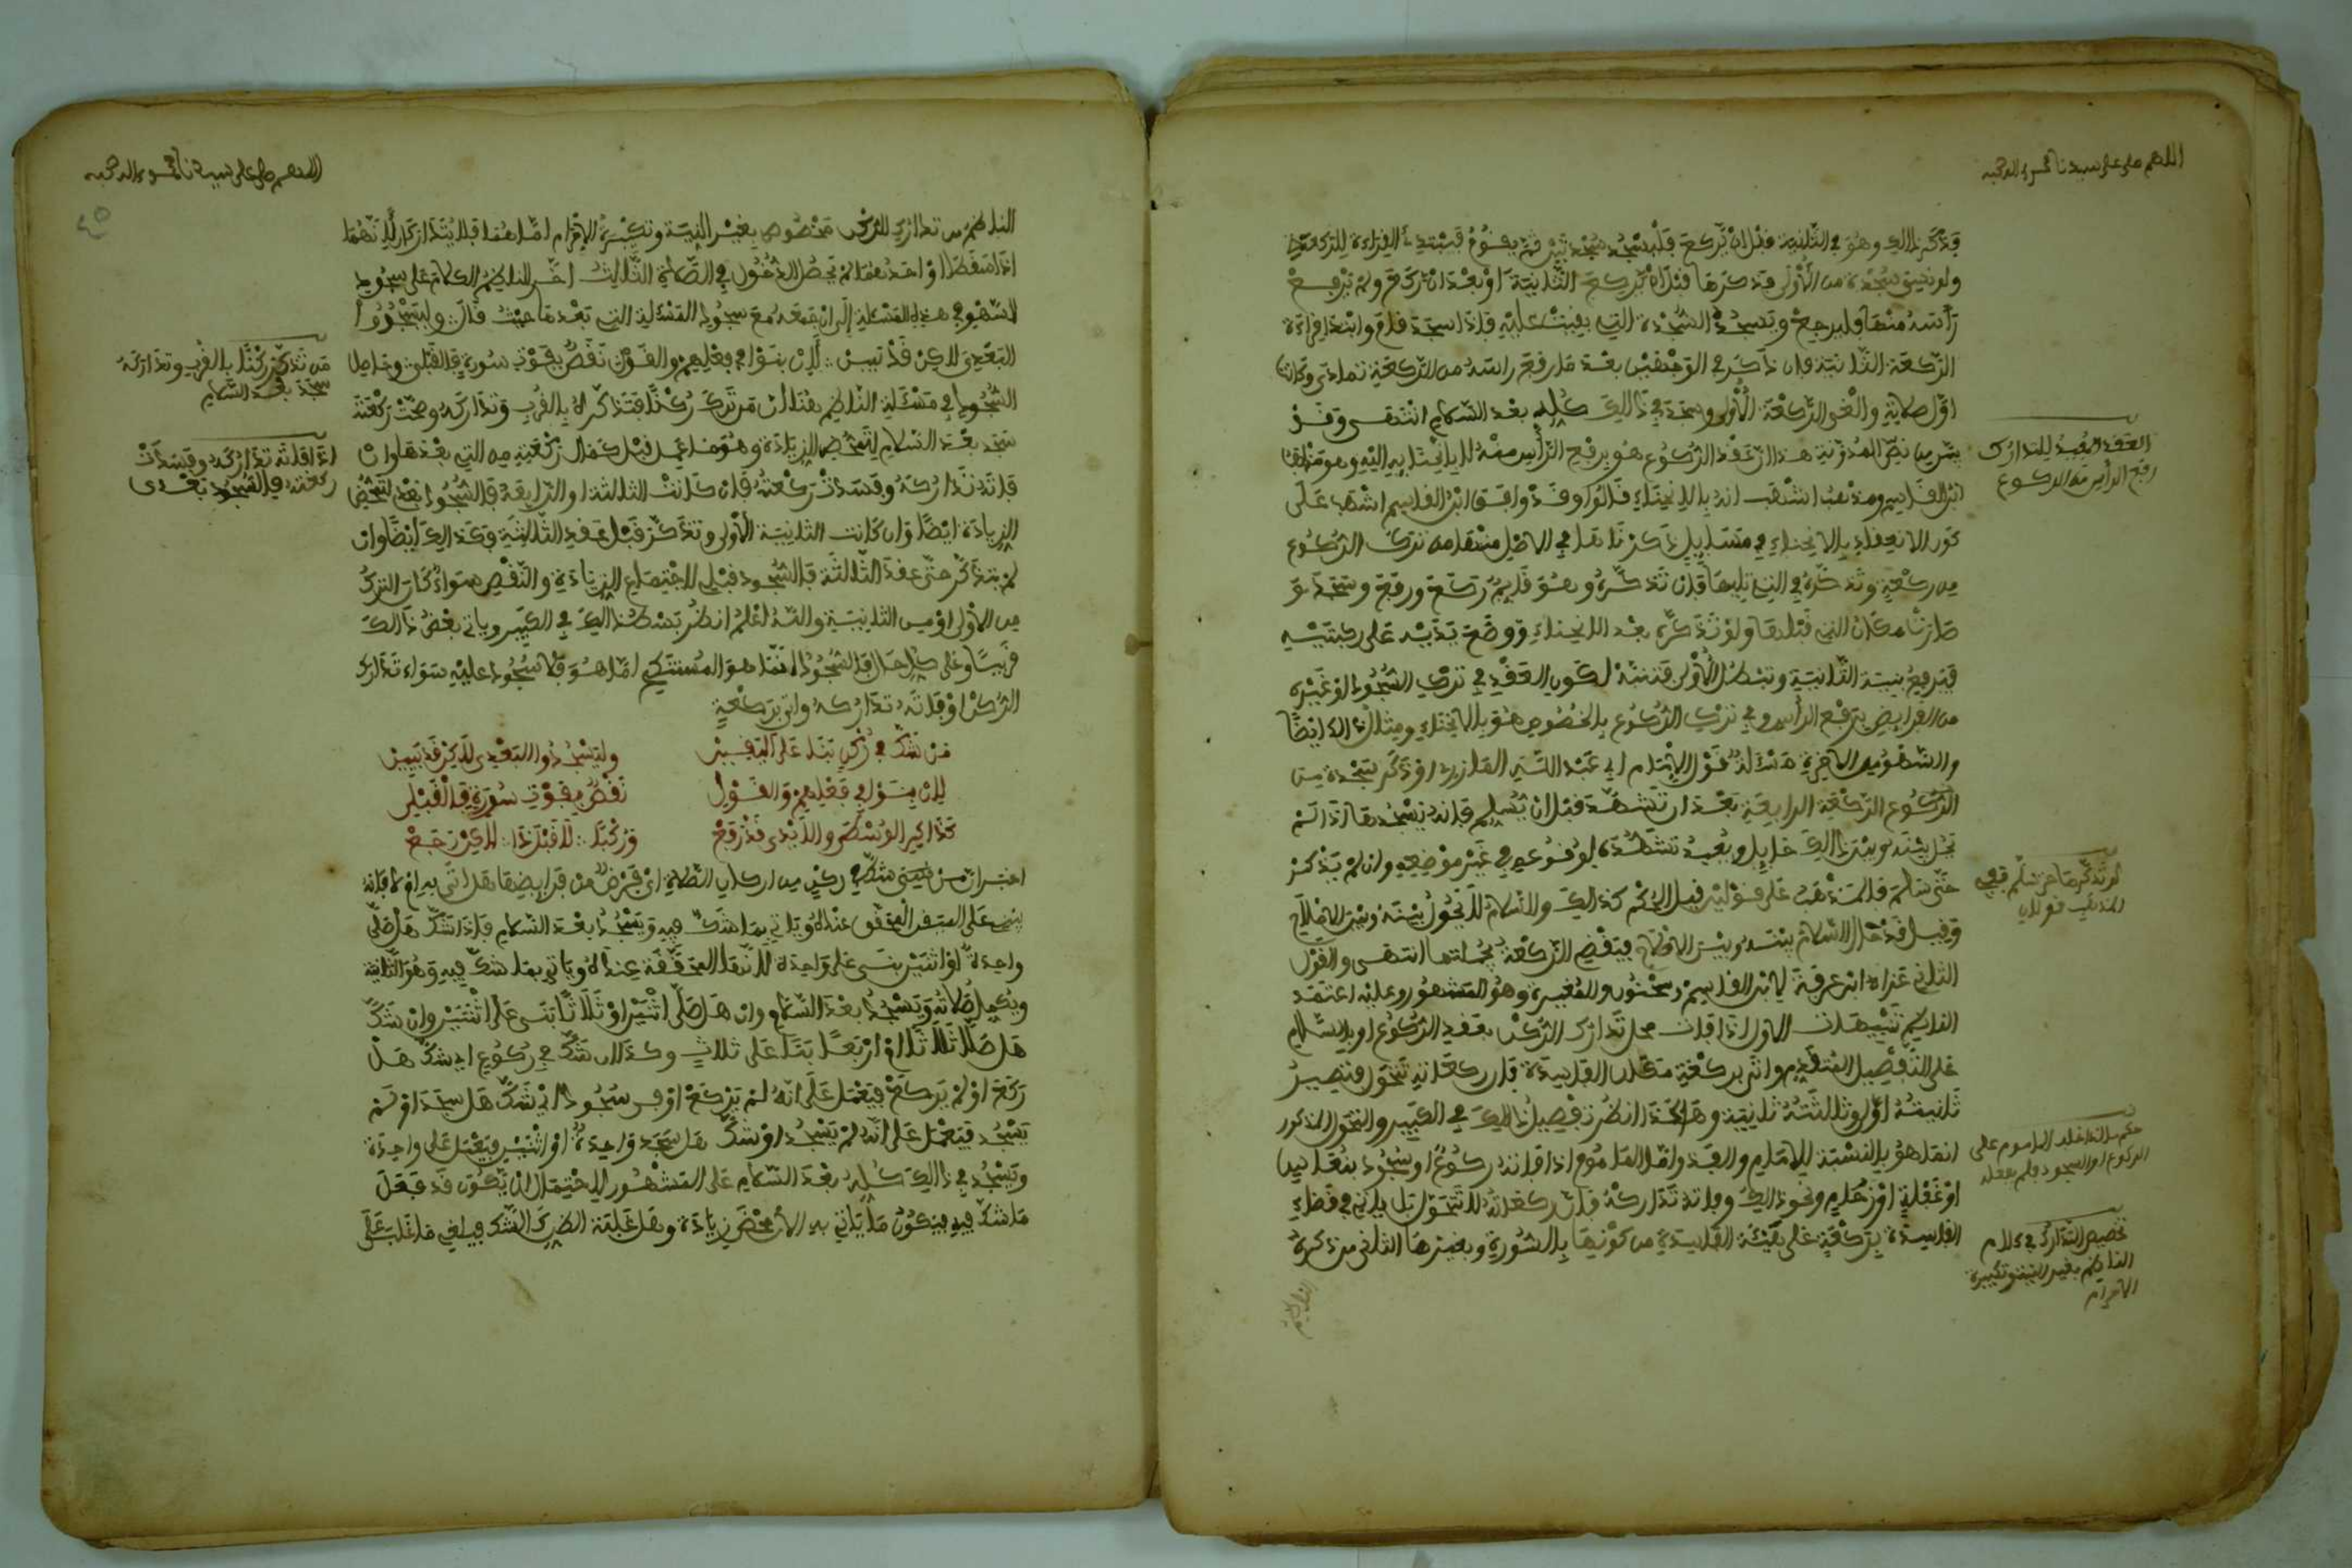 اللهم صل على سيدنا محمد وءاله وصحبه
فذكر ذالك وهو في الثانية قبل ان يركع فليسجد سجدتين ثم يقوم فيبتدئ القراءة للركعة
ولو نسي سجدة من الأولى فذكرها قبل ان يركع الثانية او بعد ان ركع ولم يرفع
رأسه منها فليرجع ويسجد السجدة التي بقيت عليه فإذا سجد قام وابتدأ قراءة
الركعة الثانية فإن ذكر في الوجهين بعد ما رفع رأسه من الركعة تمادى وكانت
اول صلاته والغى الركعة الأولى وسجد في ذالك كله بعد السلام انتهى وقد
بين من نص المدونة هذا ان عقد الركوع هو برفع الرأس منه لا بالانحناء اليه وهو مذهب
ابن القاسم ومذهب اشهب انه بالانحناء قالوا وقد وافق ابن القاسم اشهب على
كون الانعقاد بالانحناء في مسايل ذكرناها في الاصل منها من ترك الركوع
من ركعة وتذكره في التي تليها فإن تذكره وهو قايم ركع ورفع وسجد و
صارت مكان التي قبلها ولو تذكره بعد الانحناء ووضع يديه على ركبتيه
فيرفع بنية الثانية وتبطل الأولى
من الفرايض برفع الرأس وفي ترك الركوع بالخصوص هو بالانحناء ومثال ذالك ايضا
والسهو من الاخرة مسئلة قول الامام ابي عبد الله المازري او ذكر سجدة من
الركوع الركعة الرابعة بعد ان تشهد قبل ان يسلم فإنه يسجدها اذ لم
يحل بينه وبين ذالك حايل ويعيد تشهده لوقوعه في غير موضعه وان لم يذكر
حتى سلم فالمذهب على قولين قيل الحكم كذالك والسلام لا يحول بينه وبين الاصلاح
وقيل قد حال السلام بينه وبين الاصلاح فيقضي الركعة بجملتها انتهى والقول
الثاني عزاه ابن عرفة لابن القاسم وسحنون والمغيرة وهو المشهور وعليه اعتمد
الناظم تنبيهات الاول اذا فات محل تدارك الركن بعقد الركوع او بالسلام
على التفصيل المتقدم واتى بركعة مكان الفاسدة فإن ركعاته تتحول فتصير
ثانيته اولى وثالثته ثانية وهاكذا انظر تفصيل ذالك في الكبير والتحول المذكور
انما هو بالنسبة للامام والفذ واما الماموم اذا فاته ركوع او سجود بنعاس
او غفلة او زحام ونحو ذالك وفاته تداركه فإن ركعاته لا تتحول بل ياتي في قضاء
الفاسدة بركعة على هيئة الفاسدة من كونها بالسورة وبغيرها الثاني ما ذكره
الناظم
العقد المفيت للتدارك
رفع الرأس من الركوع
لو تذكرها حين سلم ففي
المذهب قولان
الركوع او السجود
تخصيص التدارك في كلام
الناظم بغير النية وتكبيرة
الاحرام
اللهم صل على سيدنا محمد وءاله وصحبه
الناظم من تدارك الركن مخصوص بغير النية وتكبيرة الاحرام اما هما فلا يتداركان لانهما
اذا سقطا او احدهما لم يحصل الدخول في الصلاة الثالث اخر الناظم الكلام على سجود
السهو في هذه المسئلة الى ان جمعه مع سجود المسئلة التي بعدها حيث قال وليسجدوا
البعدي لاكن قد يبين لان بنوا في فعلهم والقول نقص بفوت سورة فالقبلي وحاصل
السجود في مسئلة الناظم هنا ان من ترك ركنا فتذكره بالقرب وتداركه وصحت ركعته
سجد بعد السلام لتمحض الزيادة وهو ما عمل قبل كمال ركعته من التي بعدها وان
فاته تداركه وفسدت ركعته فإن كانت الثالثة او الرابعة فالسجود بعدي لتمحض
الزيادة ايضا وان كانت الثانية الأولى وتذكر قبل عقد الثالثة فكذالك ايضا وان
لم يتذكر حتى عقد الثالثة فالسجود قبلي لاجتماع الزيادة والنقص سواء كان الترك
من الاولى او من الثانية والله اعلم انظر بسط ذالك في الكبير وياتي بعض ذالك
قريبا وعلى كل حال فالسجود انما هو لغير المستنكح اما هو فلا سجود عليه سواء تدارك
الركن او فاته تداركه واتى بركعة
من شك في ركن بنى على اليقين وليسجدوا البعدي لاكن قد يبين
لان بنوا في فعلهم والقول نقص بفوت سورة فالقبلي
كذاكر الوسطى والايدي قد رفع وركبا لا قبل ذا لاكن رجع
اخبر ان من شك في ركن من اركان الصلاة اي فرض من فرايضها هل اتى به ام لا فإنه
يبني على اليقين المحقق عنده وياتي بما شك فيه ويسجد بعد السلام فإذا شك هل صلى
واحدة او اثنتين بنى على واحدة لانها المحققة عنده وياتي بما شك فيه وهو الثانية
ويكمل صلاته ويسجد بعد السلام وان شك هل صلى اثنتين او ثلاثا بنى على اثنتين وان شك
هل صلى ثلاثا او اربعا بنى على ثلاث وكذا ان شك في ركوع اي شك هل
ركع او لم يركع فيعمل على انه لم يركع او في سجود اي شك هل سجد او لم
يسجد فيعمل على انه لم يسجد او شك هل سجد واحدة او اثنتين فيعمل على واحدة
ويسجد في ذالك كله بعد السلام على المشهور لاحتمال ان يكون قد فعل
ما شك فيه فيكون ما ياتي به الآن محض زيادة وهل غلبة الظن كالشك فيلغي ما غلب على
من تذكر ركنا بالقرب وتداركه
سجد بعد السلام
اذا فاته تداركه وفسدت
ركعته فالسجود بعدي